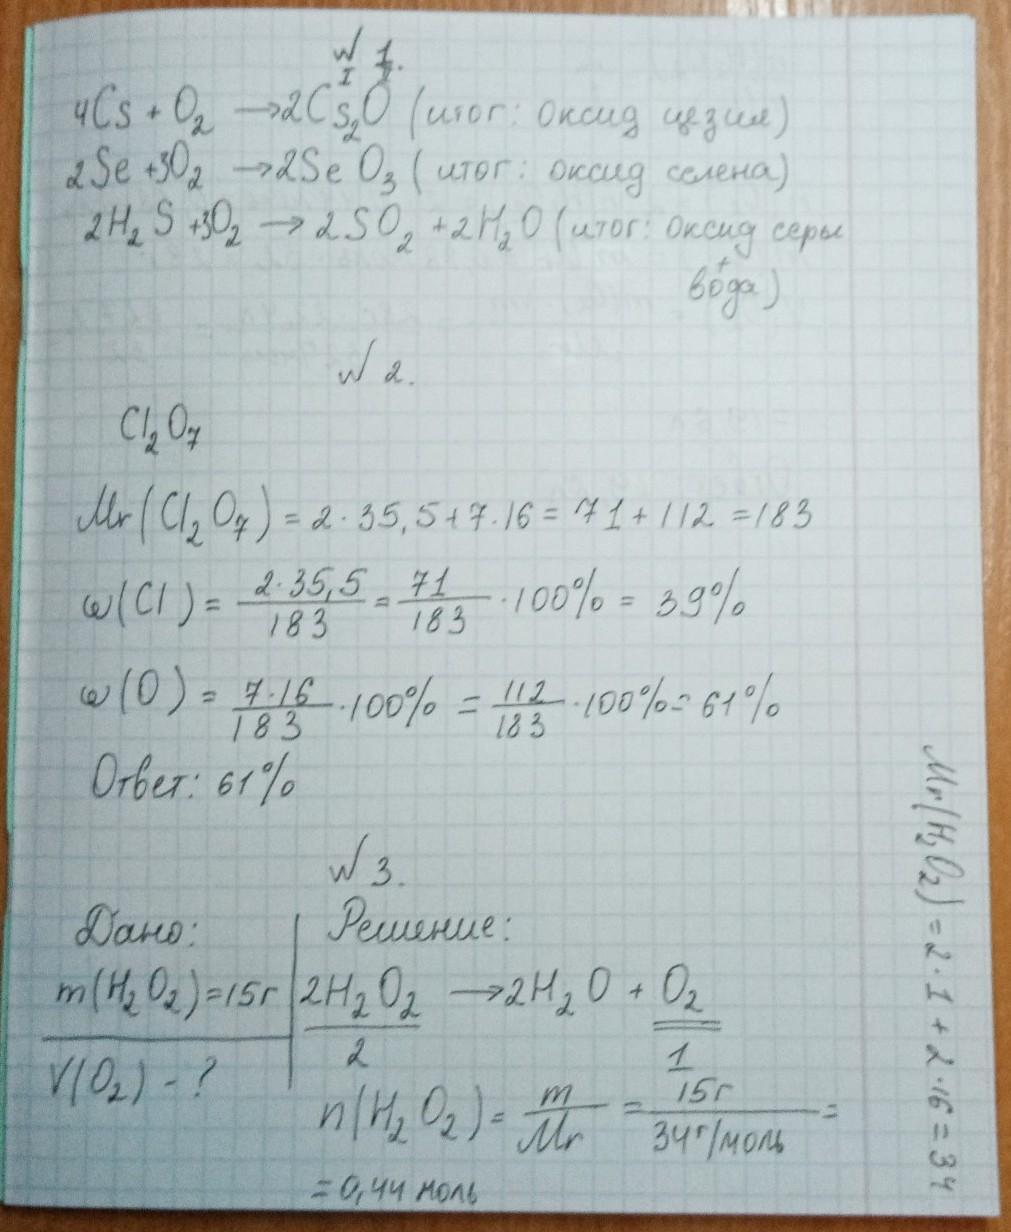 № 1.
I I
4Cs + O₂ → 2Cs₂O (итог: оксид цезия)
2Se + 3O₂ → 2SeO₃ (итог: оксид селена)
2H₂S + 3O₂ → 2SO₂ + 2H₂O (итог: оксид серы
+
вода)
№ 2.
Cl₂O₇
Mr(Cl₂O₇) = 2·35,5+7·16 = 71+112 = 183
ω(Cl) = 2·35,5/183 = 71/183 · 100% = 39%
ω(O) = 7·16/183 · 100% = 112/183 · 100% = 61%
Ответ: 61%
№ 3.
Дано: Решение:
m(H₂O₂)=15г 2H₂O₂ → 2H₂O + O₂
2 1
V(O₂) - ?
n(H₂O₂) = m/Mr = 15г/34г/моль =
= 0,44 моль
Mr(H₂O₂) = 2·1 + 2·16 = 34